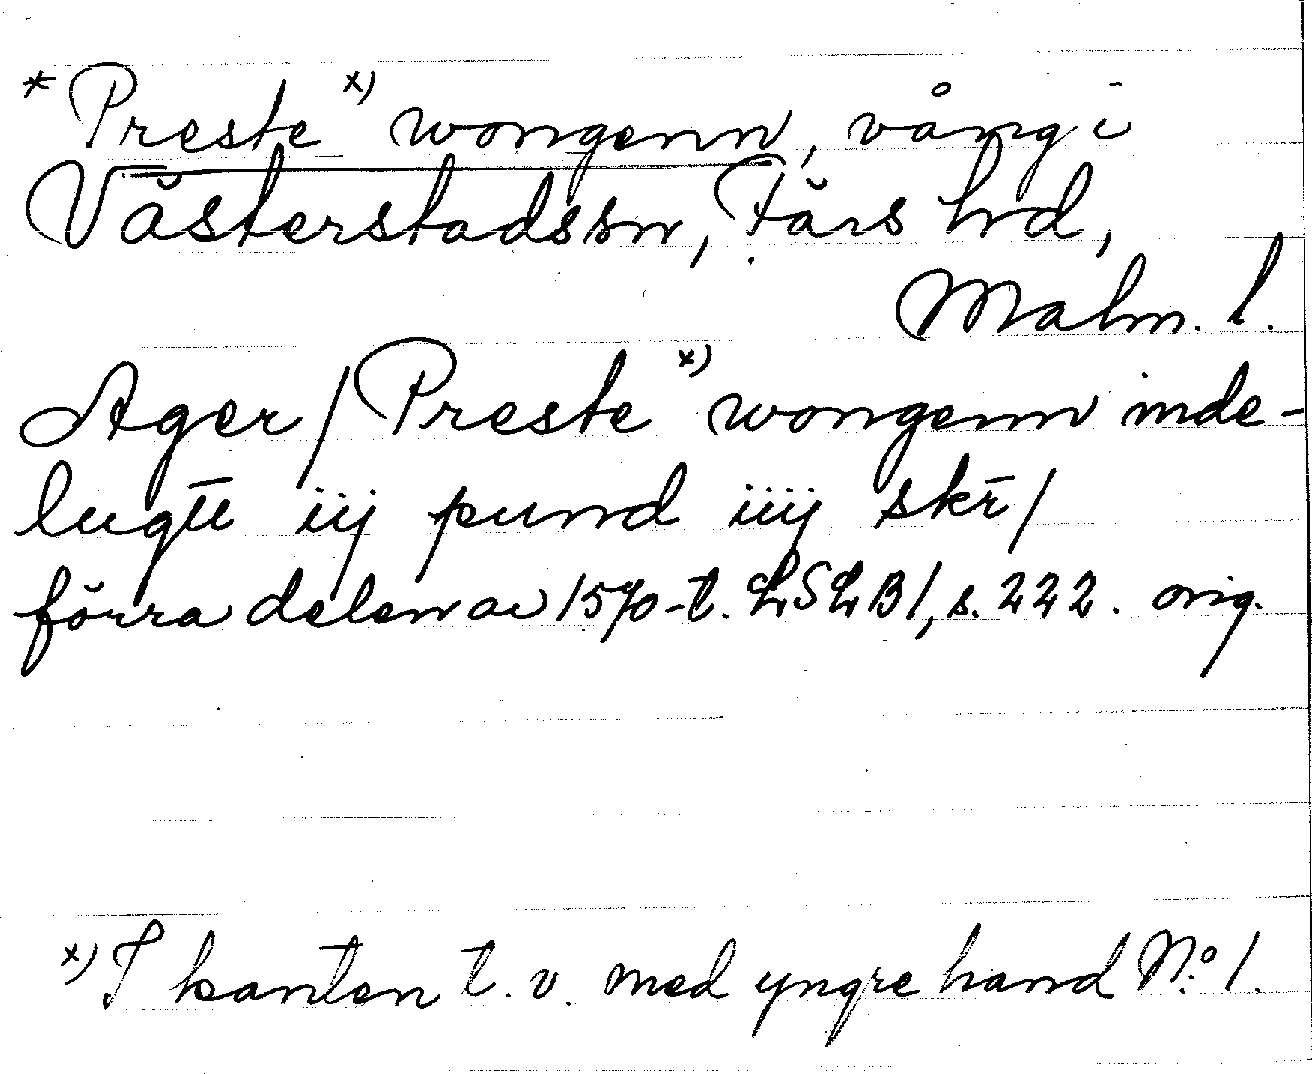 * Preste x) wongenn, vång i
Västerstads sn, Färs hd,
Malm. l.
Ager / Preste x) wongenn inde-
lugtt iij pund iiij skr̄ /
förra delen av 1570-t. LSLB 1, s. 222. orig.
x) I kanten t. v. med yngre hand N:o 1.